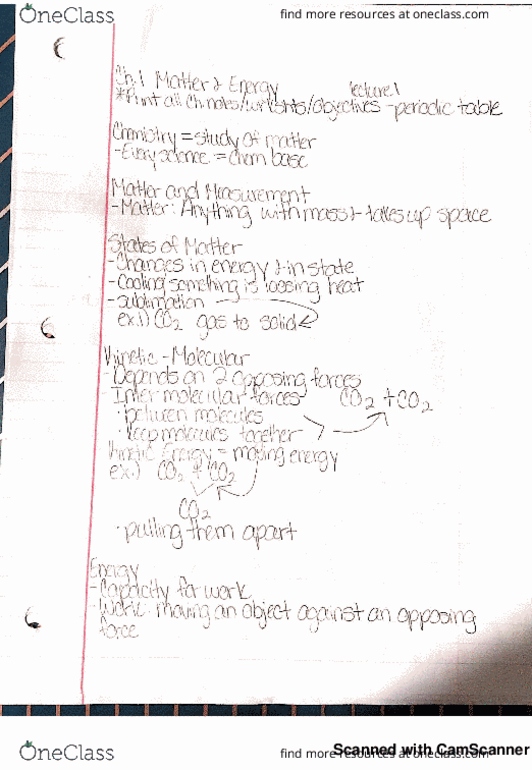 OneClass
find more resources at oneclass.com
Ch.1 Matter & Energy lecture 1
*Print all Ch. notes/wrkshts/objectives - periodic table
Chemistry = study of matter
- Every science = chem base
Matter and Measurement
- Matter: Anything with mass & takes up space
States of Matter
- Changes in energy & in state
- Cooling something is loosing heat
- sublimation
ex.1) CO2 gas to solid
Kinetic - Molecular
- Depends on 2 opposing forces
- Inter molecular forces CO2 + CO2
· between molecules
· keep molecules together
Kinetic Energy = moving energy
ex.) CO2 + CO2
CO2
· pulling them apart
Energy
- Capacity for work
- Work: moving an object against an opposing
force
OneClass
find more resources at oneclass.com
Scanned with CamScanner